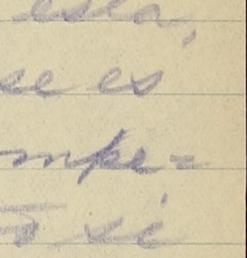 esta,
se es
mpe=
si